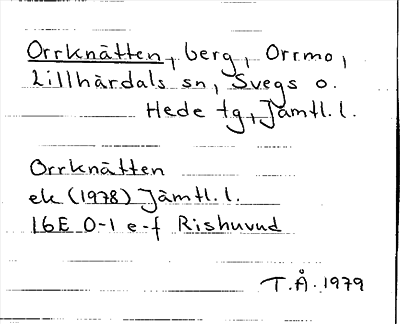 Orrknätten, berg, Orrmo,
Lillhärdals sn, Svegs o.
Hede tg, Jämtl. l.
Orrknätten
ek (1978) Jämtl. l.
16E 0-1 e-f Rishuvud
T.Å. 1979